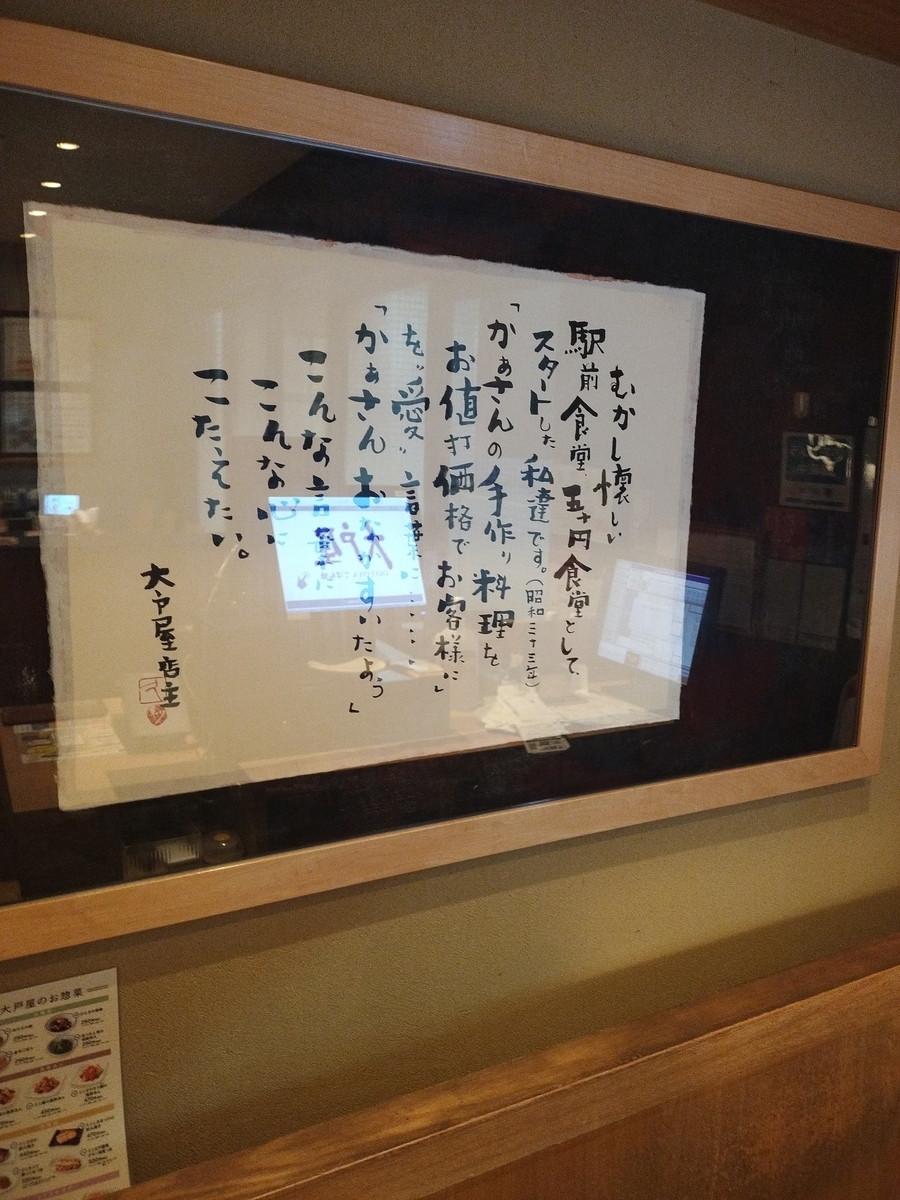 むかし懐しい
駅前食堂、五十円食堂として、
スタートした私達です。(昭和三十三年)
「かぁさんの手作り料理を
お値打価格でお客様に」
を〝愛〟言葉に……。
「かぁさんおなかすいたよぅ」
こんな言葉に、
こんな心に
こたえたい。
大戸屋店主
大戸屋
大戸屋のお惣菜